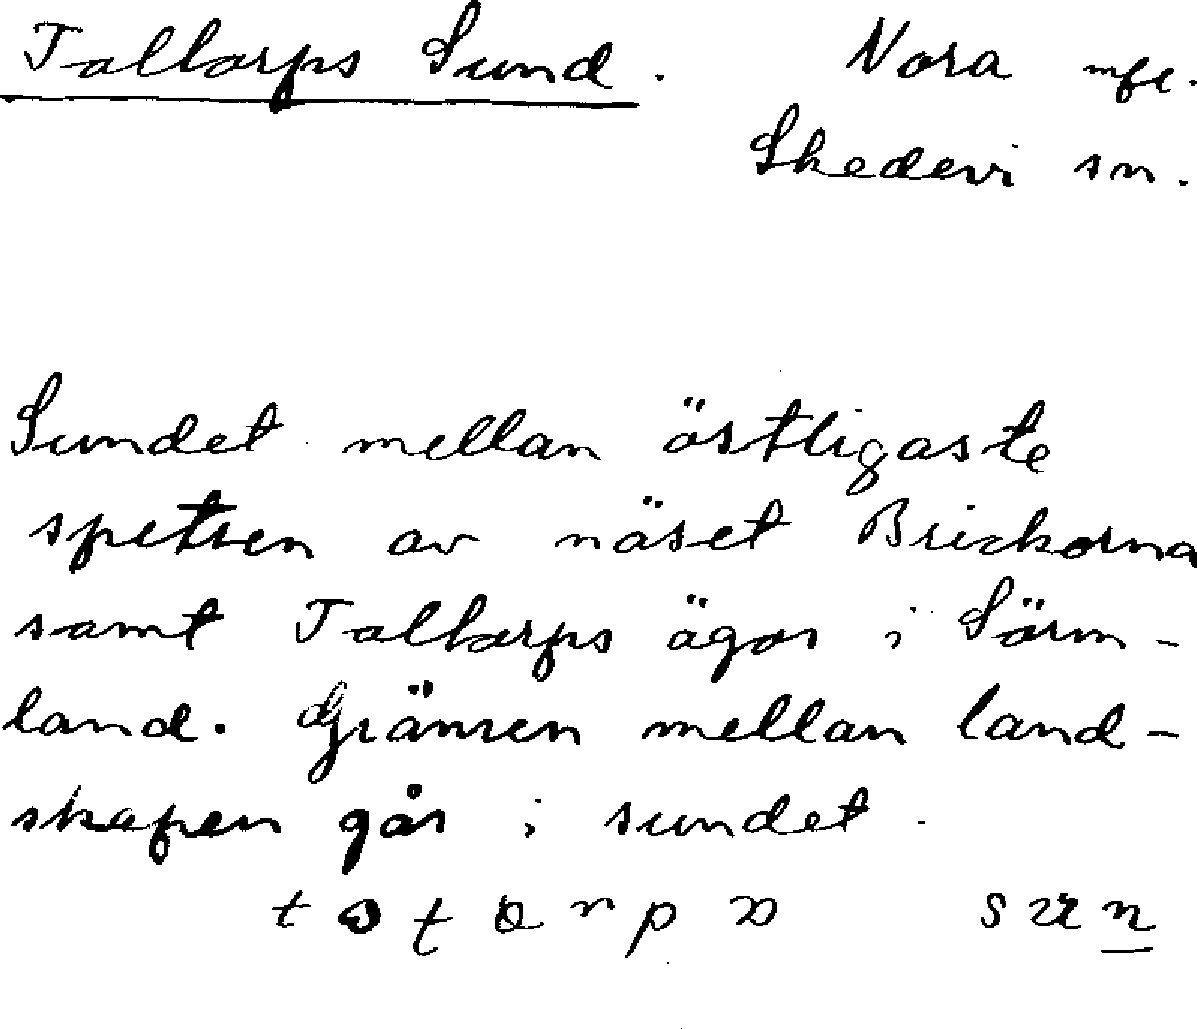 Taltorps Sund.
Nora mfl.
Skedevi sn.
Sundet mellan östligaste
spetsen av näset Brickorna
samt Taltorps ägor i Sörm-
land. Gränsen mellan land-
skapen går i sundet.